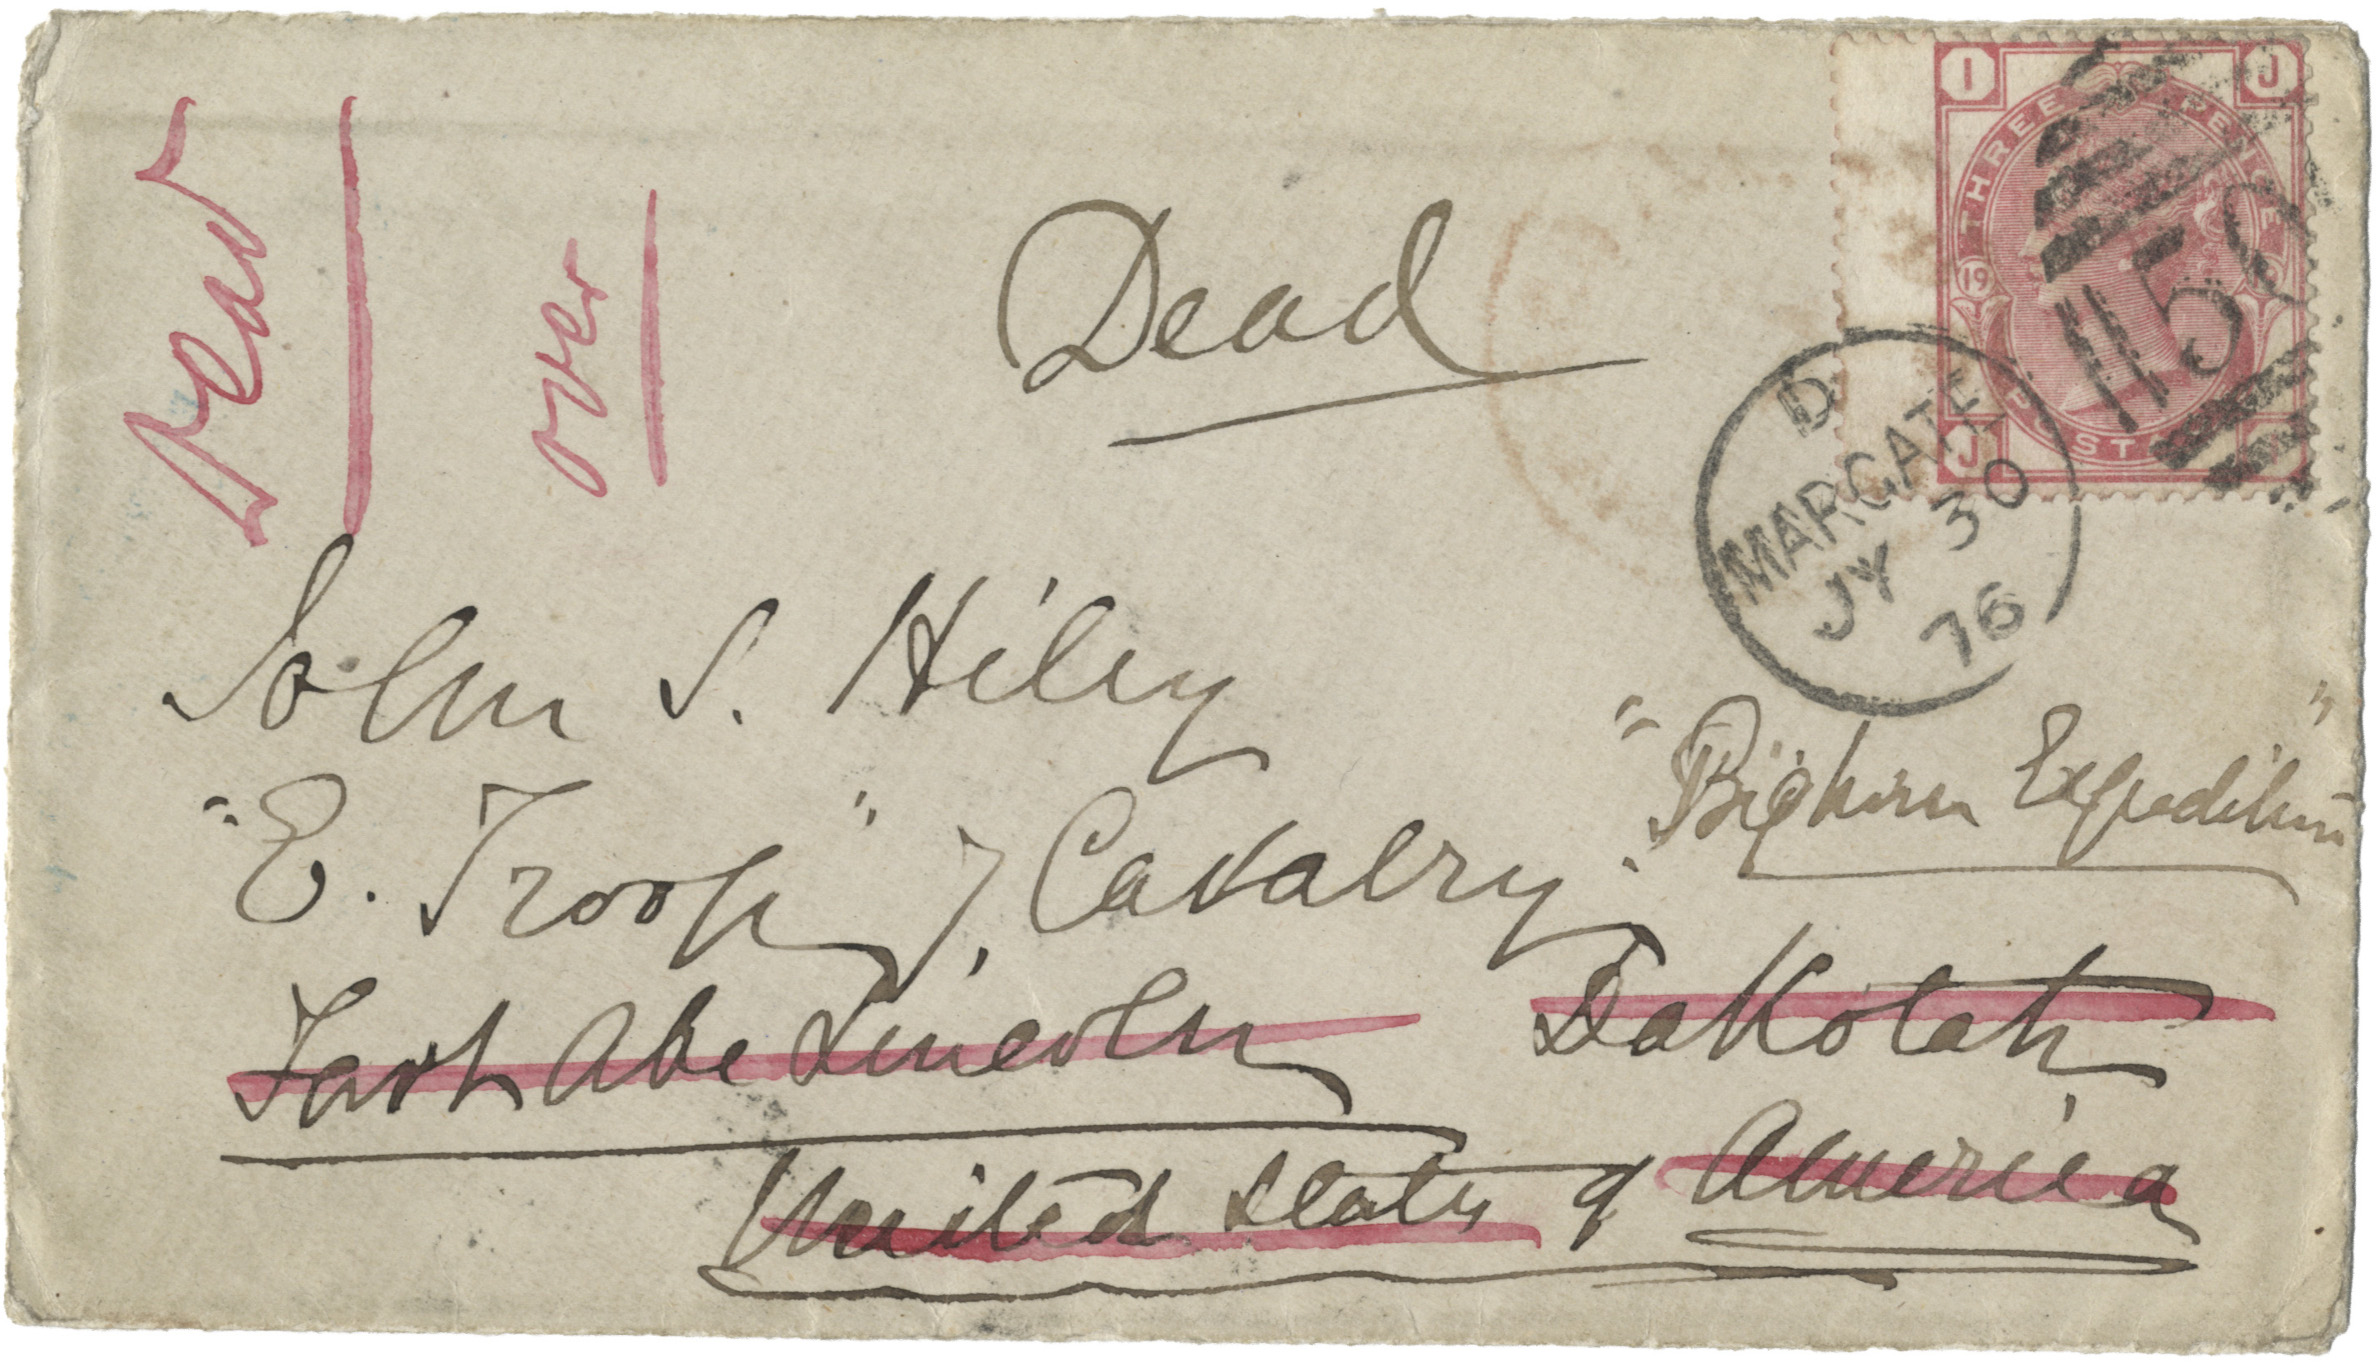 Dead
over
Dead
I J
THREE PENCE
19
POSTAGE
J
1159
D
MARGATE
JY 30
76
John S. Hiley
"E. Troop" 7, Cavalry.
"Bighorn Expedition"
Fort Abe Lincoln Dakotah
United States of America